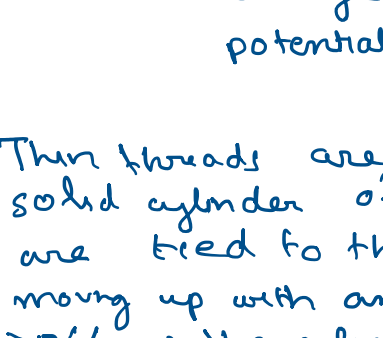 potential
Thin threads are
solid cylinder
are tied to th
moving up with an